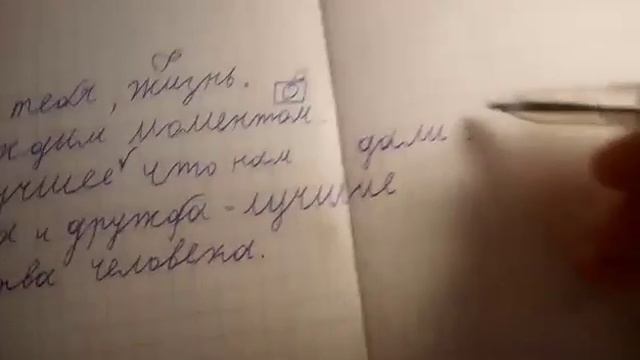 тебя, Жизнь.
ждым моментом
учшее что нам дали.
а и дружба - лучшие
ва человека.